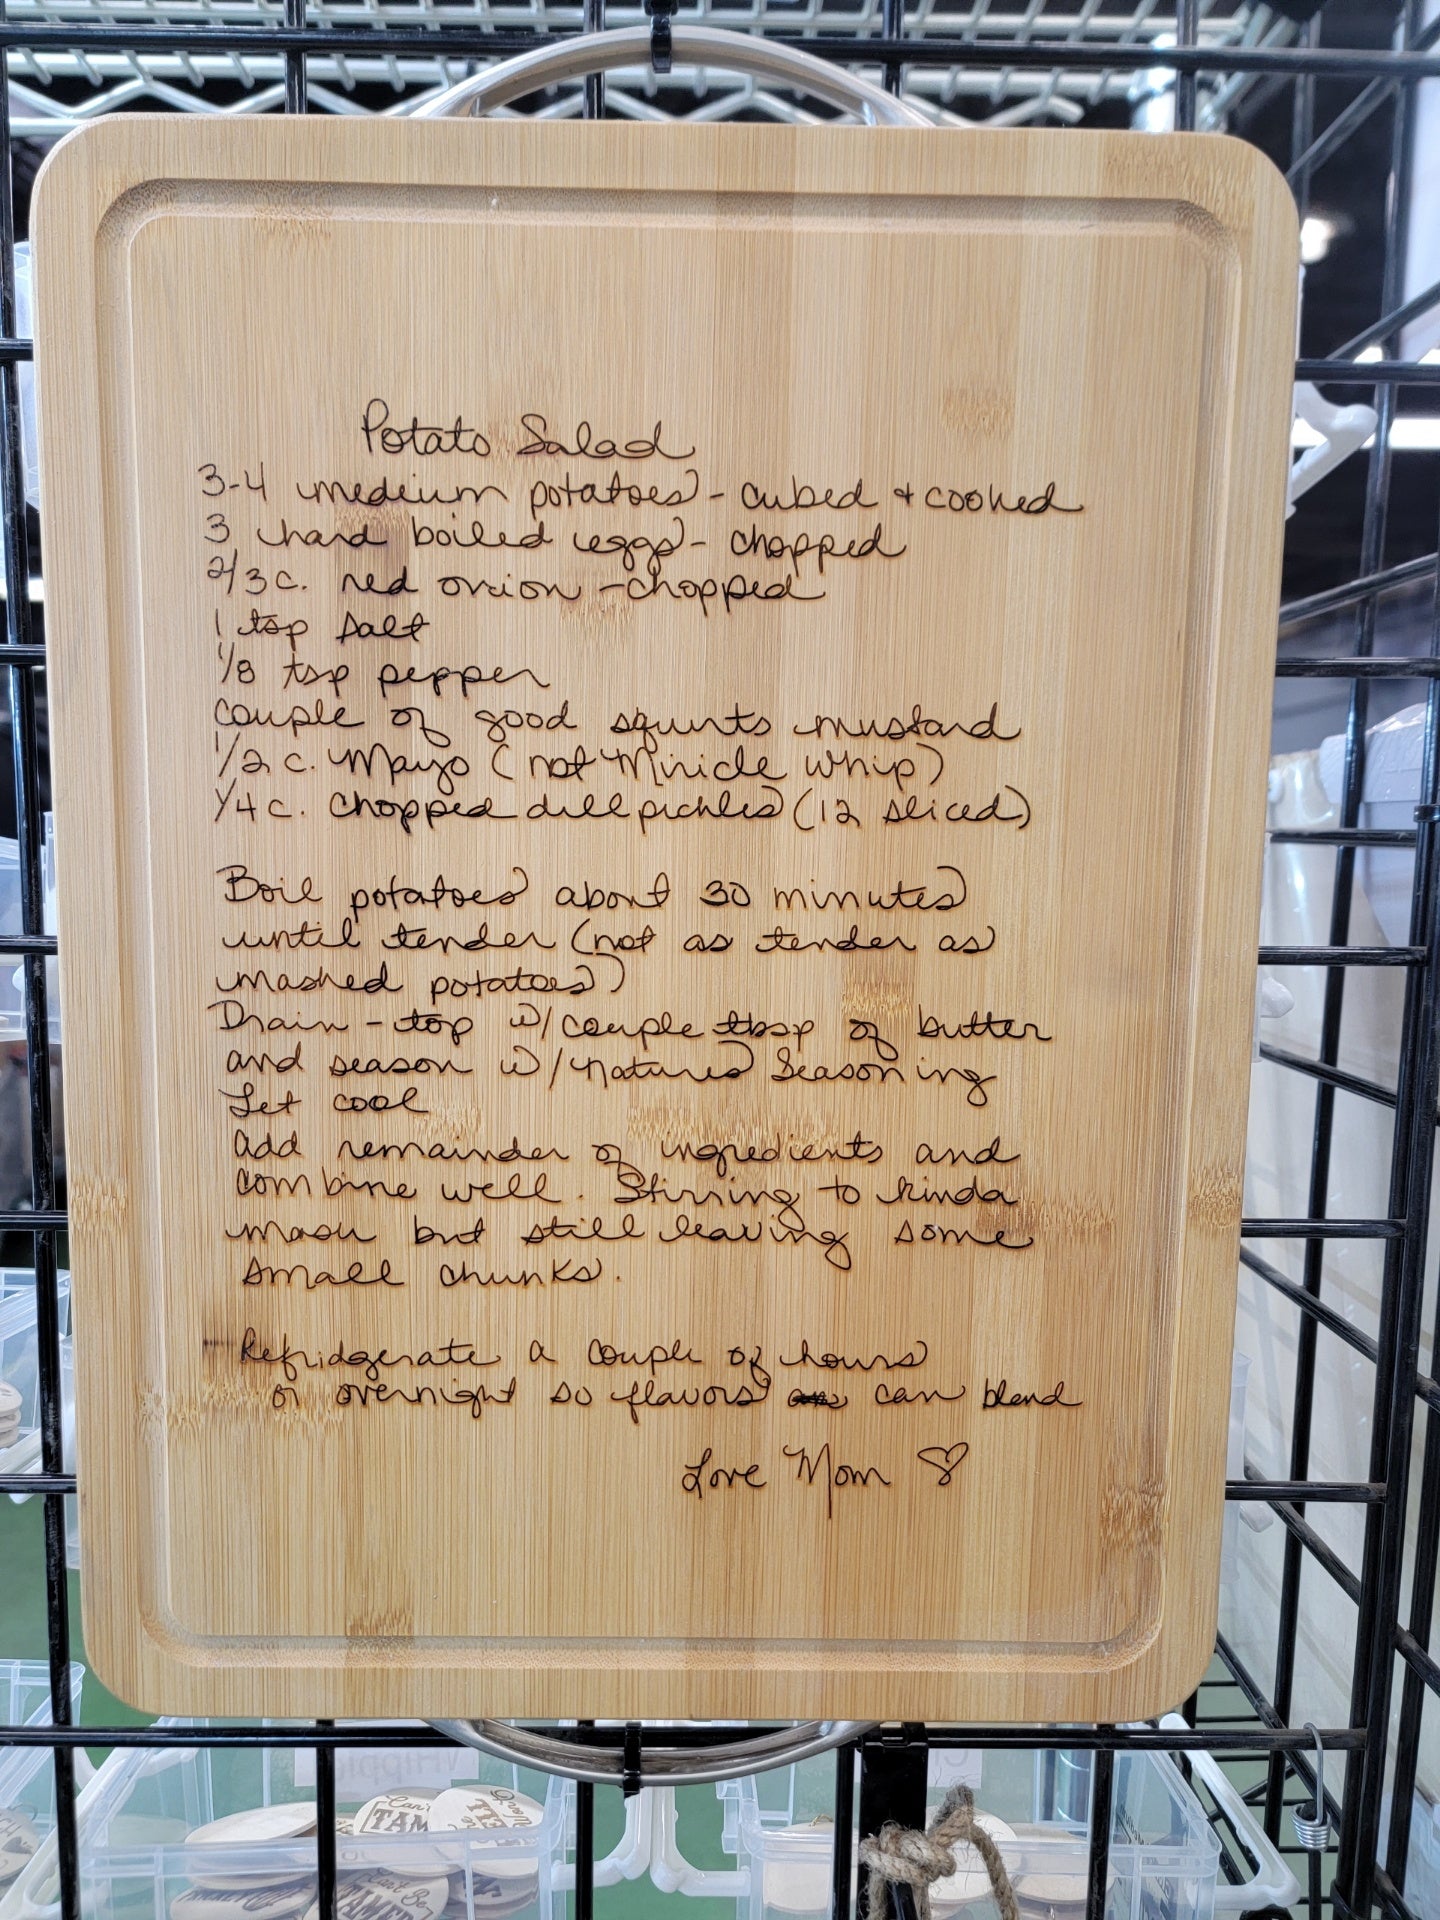 Potato Salad
3-4 medium potatoes - cubed + cooked
3 hard boiled eggs - chopped
2/3 c. red onion - chopped
1 tsp salt
1/8 tsp pepper
couple of good squirts mustard
1/2 c. Mayo (not Miricle Whip)
1/4 c. chopped dill pickles (12 sliced)
Boil potatoes about 30 minutes
until tender (not as tender as
mashed potatoes)
Drain - top w/ couple tbsp of butter
and season w/ Natures Seasoning
Let cool
add remainder of ingredients and
combine well. Stirring to kinda
mash but still leaving some
small chunks.
Refridgerate a couple of hours
or overnight so flavors can blend
Love Mom ♡
Can't
TAM
Can't Be
TAMED